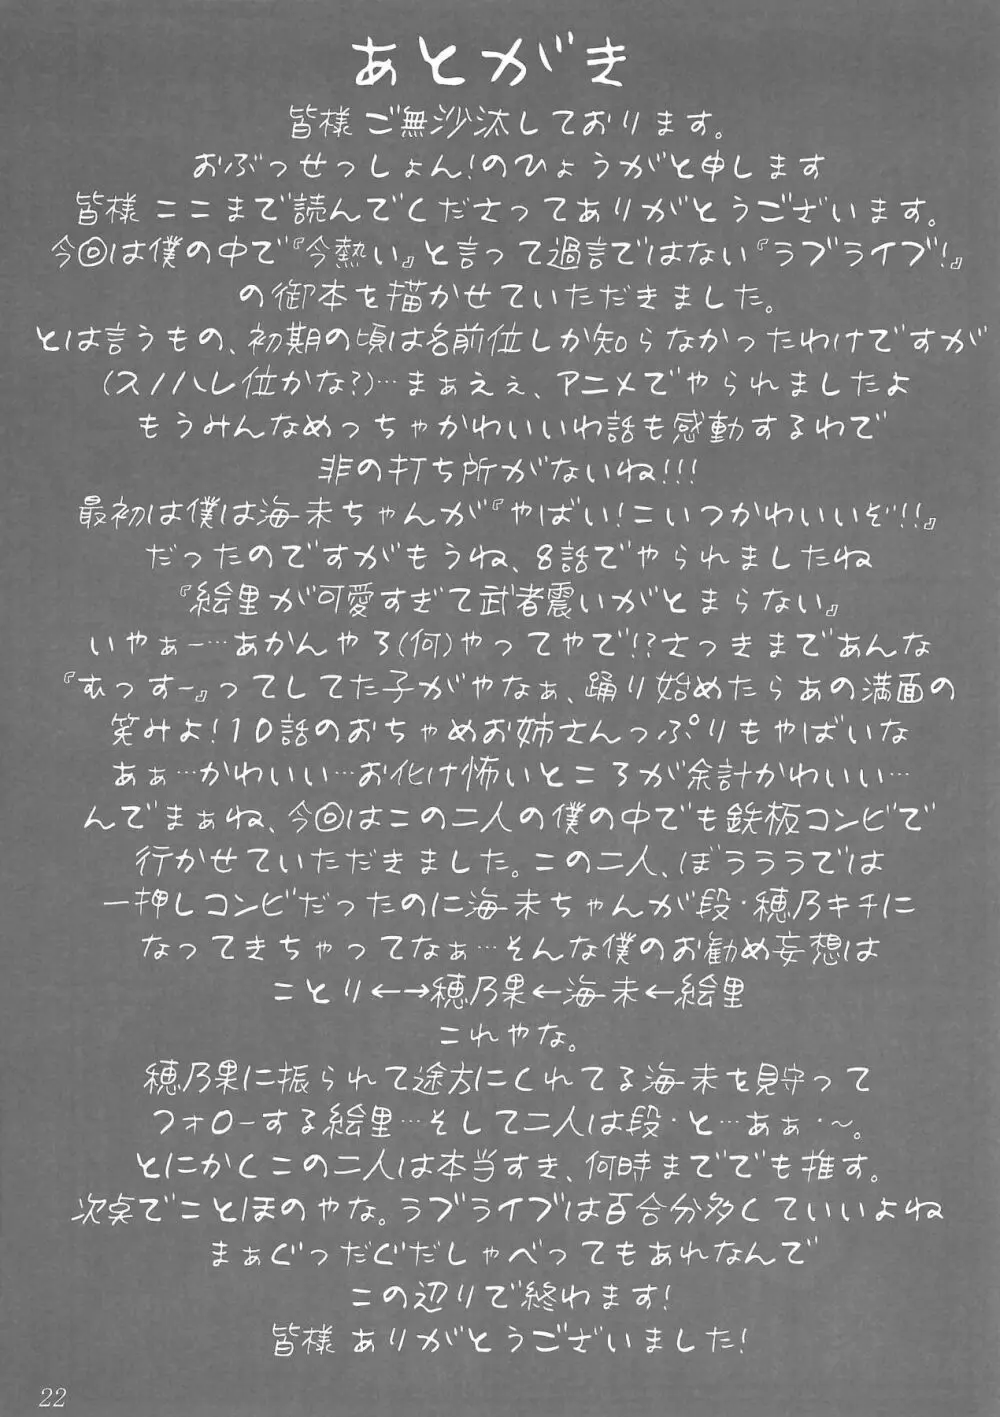 あとがき
皆様 ご無沙汰しております。
おぶっせっしょん!のひょうがと申します
皆様 ここまで読んでくださってありがとうございます。
今回は僕の中で『今熱い』と言って過言ではない『ラブライブ!』
の御本を描かせていただきました。
とは言うもの、初期の頃は名前位しか知らなかったわけですが
(スノハレ位かな?)…まぁえぇ、アニメでやられましたよ
もうみんなめっちゃかわいいわ話も感動するわで
非の打ち所がないね!!!
最初は僕は海未ちゃんが『やばい!こいつかわいいぞ!!』
だったのですがもうね、8話でやられましたね
『絵里が可愛すぎて武者震いがとまらない』
いやぁー…あかんやろ(何)やってやで!?さっきまであんな
『むっすー』ってしてた子がやなぁ、踊り始めたらあの満面の
笑みよ!10話のおちゃめお姉さんっぷりもやばいな
あぁ…かわいい…お化け怖いところが余計かわいい…
んでまぁね、今回はこの二人の僕の中でも鉄板コンビで
行かせていただきました。この二人、ぼうららでは
一押しコンビだったのに海未ちゃんが段・穂乃キチに
なってきちゃってなぁ…そんな僕のお勧め妄想は
ことり←→穂乃果←海未←絵里
これやな。
穂乃果に振られて途方にくれてる海未を見守って
フォローする絵里…そして二人は段・と…あぁ・～。
とにかくこの二人は本当すき、何時まででも推す。
次点でことほのやな。ラブライブは百合分多くていいよね
まぁぐっだぐだしゃべってもあれなんで
この辺りで終わます!
皆様 ありがとうございました!
22